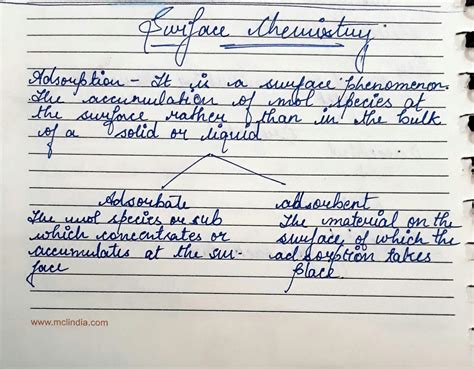 Surface Chemistry
Adsorption - It is a surface phenomenon.
The accumulation of mol species at
the surface rather than in the bulk
of a solid or liquid
Adsorbate
The mol species or sub
which concentrates or
accumulates at the sur-
face
adsorbent
The material on the
surface of which the
adsorption takes
place.
www.mclindia.com